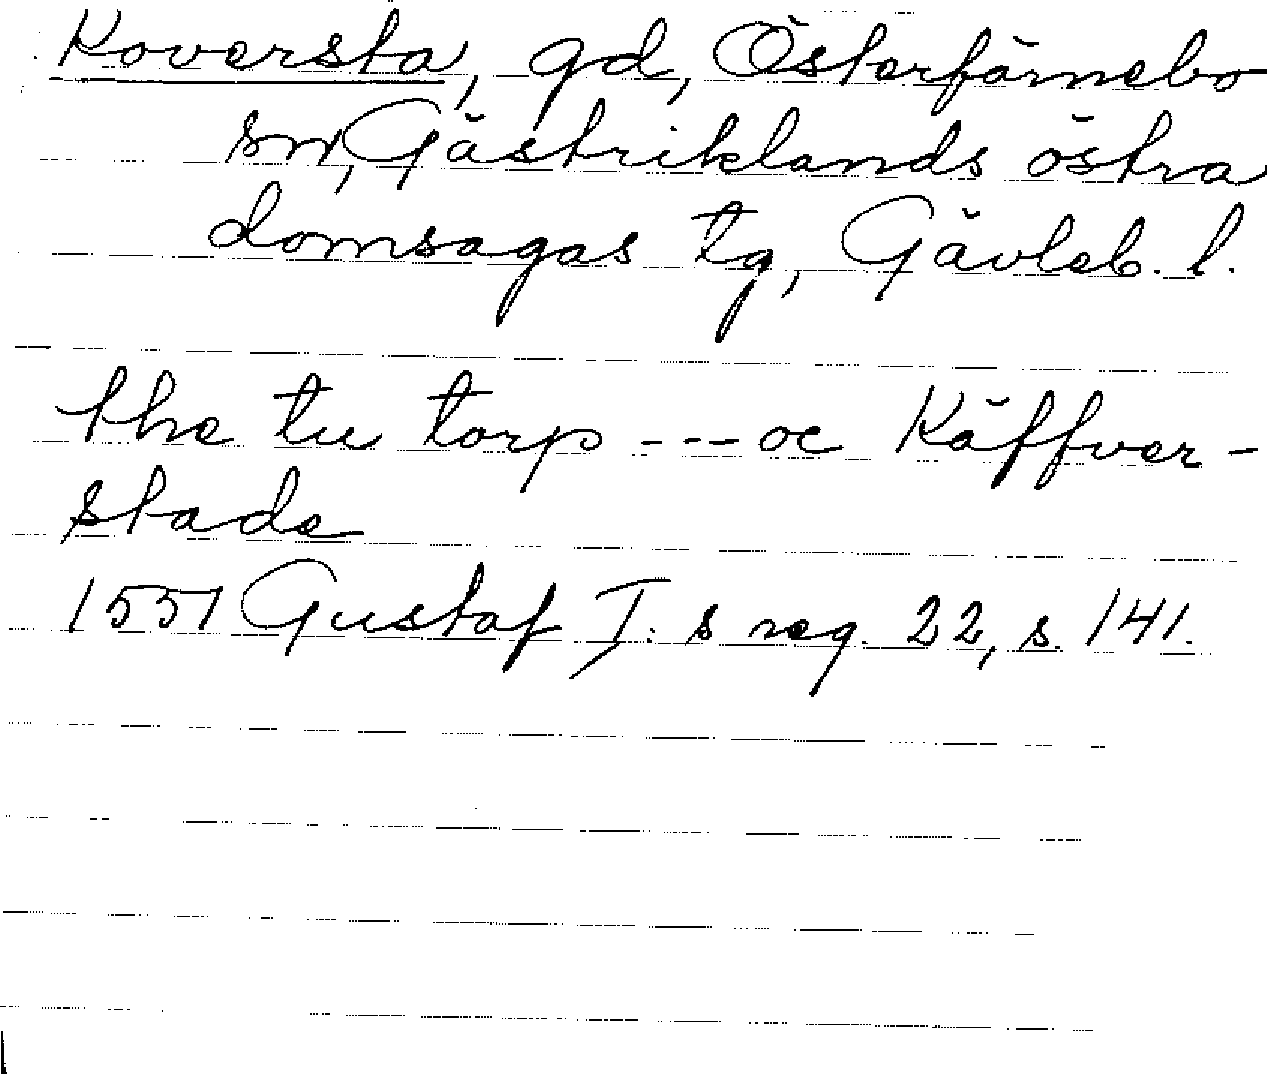 Koversta, gd, Österfärnebo
sn, Gästriklands östra
domsagas tg, Gävleb. l.
the tu torp --- oc Käffver-
stade
1551 Gustaf I:s reg. 22, s. 141.